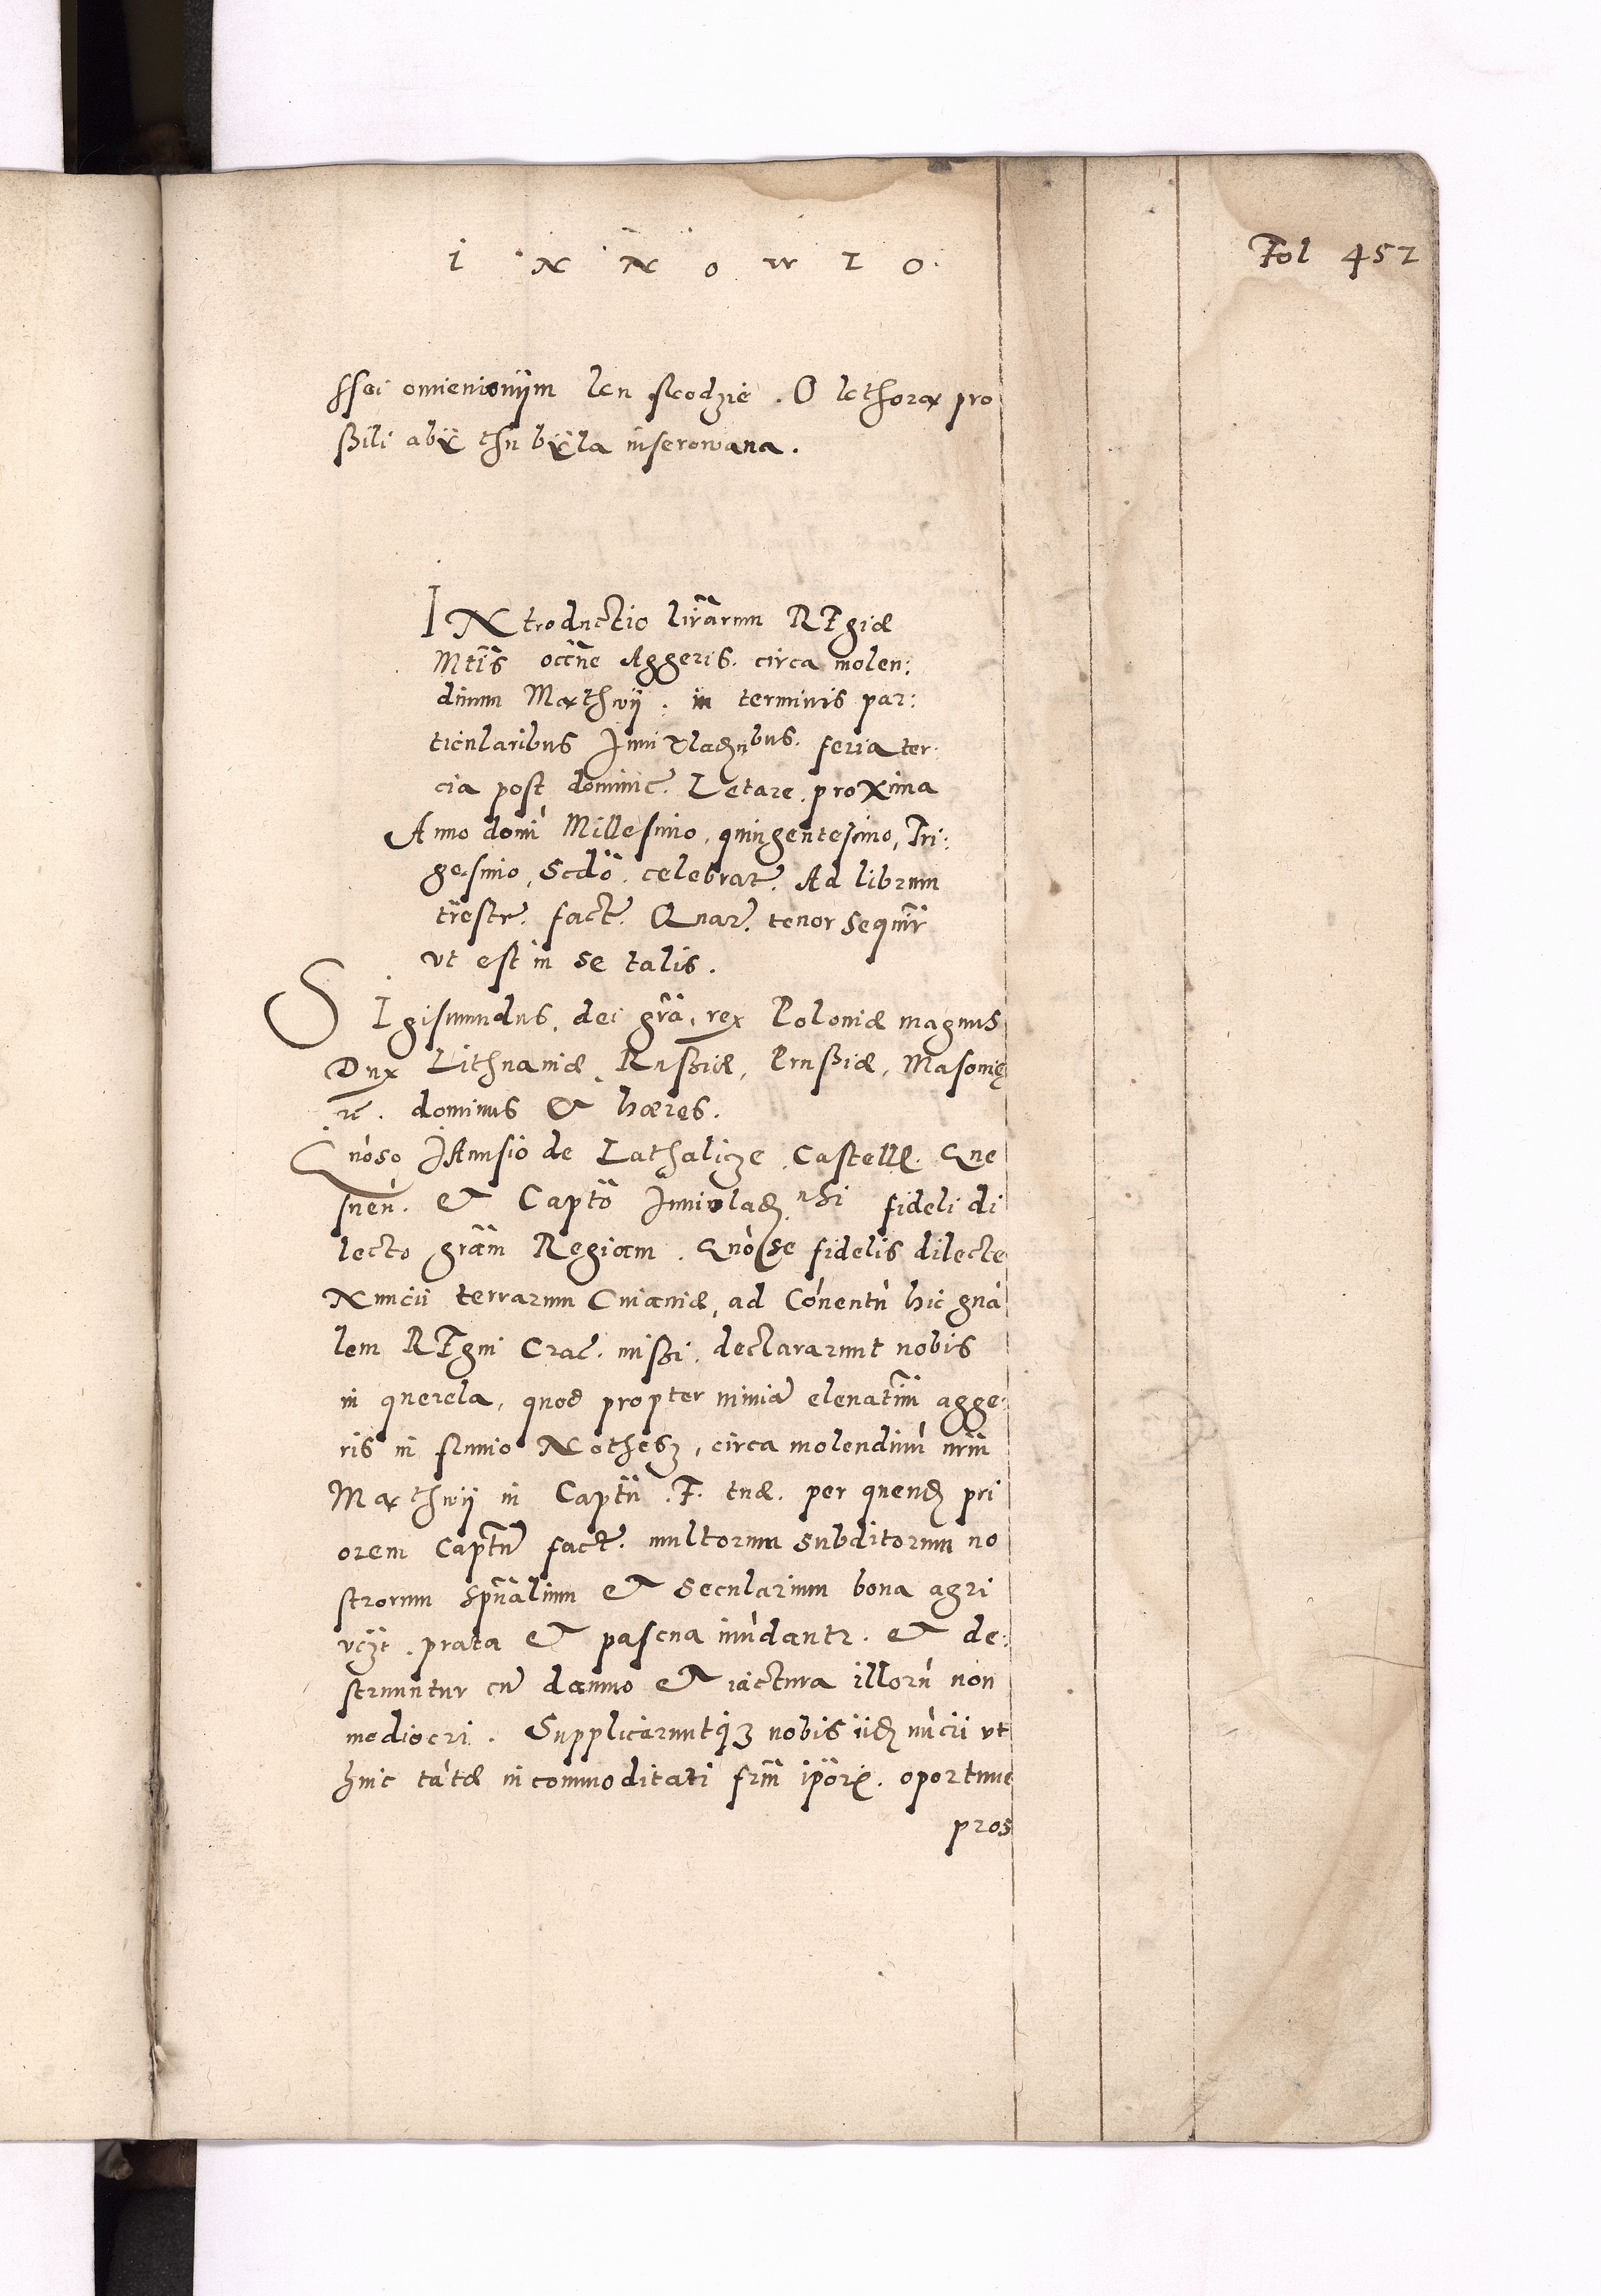 I N N O W L O.
Fol 451
ssei omienionijm ku skodzie. O kthorą pro
ßili abÿ thu bÿla inserowana.
INtroductio lrãrum REgiæ
Mtis occne Aggeris. circa molen:
dinum Mąthwÿ. in terminis par:
ticularibus Juniwladzñbus. feria ter:
cia post dominic. Letare. proxima
Anno domi Millesimo, quingentesimo, Tri:
gesimo, Scdo. celebrat. Ad librum
trestr. fact. Quar. tenor sequitr
vt est in se talis.
SIgismundus, dei grã, rex Poloniæ magnus
Dux Lithuaniæ, Rußiæ, Prußiæ, Masouię
rc. dominus & hæres.
Gnoso JAnusio de Lathalicze Castell. Gne
snen. & Capto Juniwladz.nsi fideli di
lecto grãm Regiam. Gnose fidelis dilecte
Nuncii terrarum Cuiauiæ, ad Conentu hic gna
lem REgni Crac. mißi. declararunt nobis
in querela, quod propter nimia eleuatim agge:
ris in fluuio Nothesz, circa molendinu nrm
Mąthwÿ in Captu .F. tuæ. per quendz pri
orem Captu fact. multorum subditorum no
strorum spũalium & secularium bona agri
vczt. prata & pascua inudantr. & de:
struuntur cu damno & iactura illoru non
mediocri. Supplicaruntq3 nobis iidz nucii vt
huic tatæ incommoditati frm ipor. oportune
pros